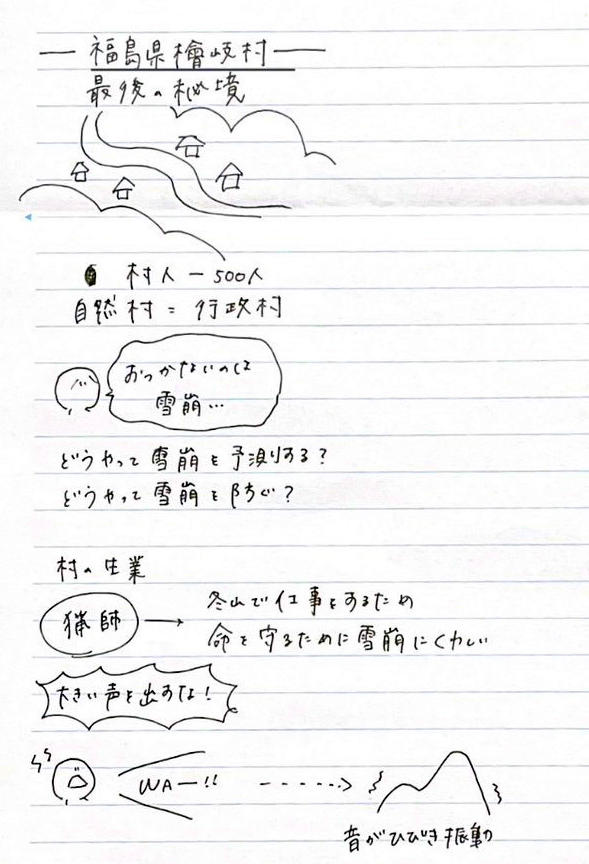 福島県檜岐村
最後の秘境
村人ー500人
自然村=行政村
おっかないのは
雪崩…
どうやって雪崩を予測する?
どうやって雪崩を防ぐ?
村の生業
猟師
冬山で仕事をするため
命を守るために雪崩にくわしい
大きい声を出すな!
WAー!!
音がひびき振動